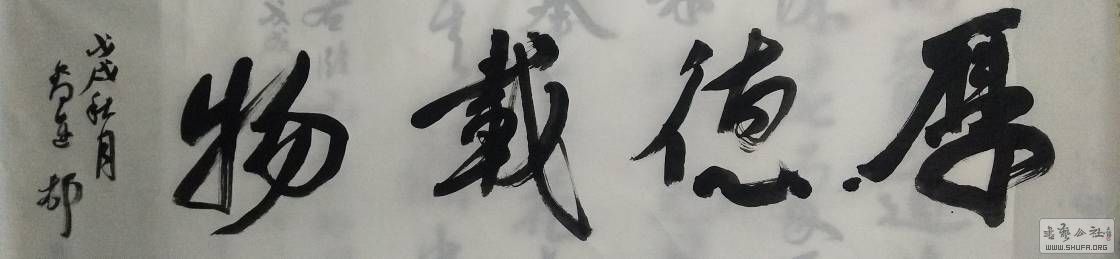 厚德載物
戊戌秋月
書藝公社
WWW.SHUFA.ORG